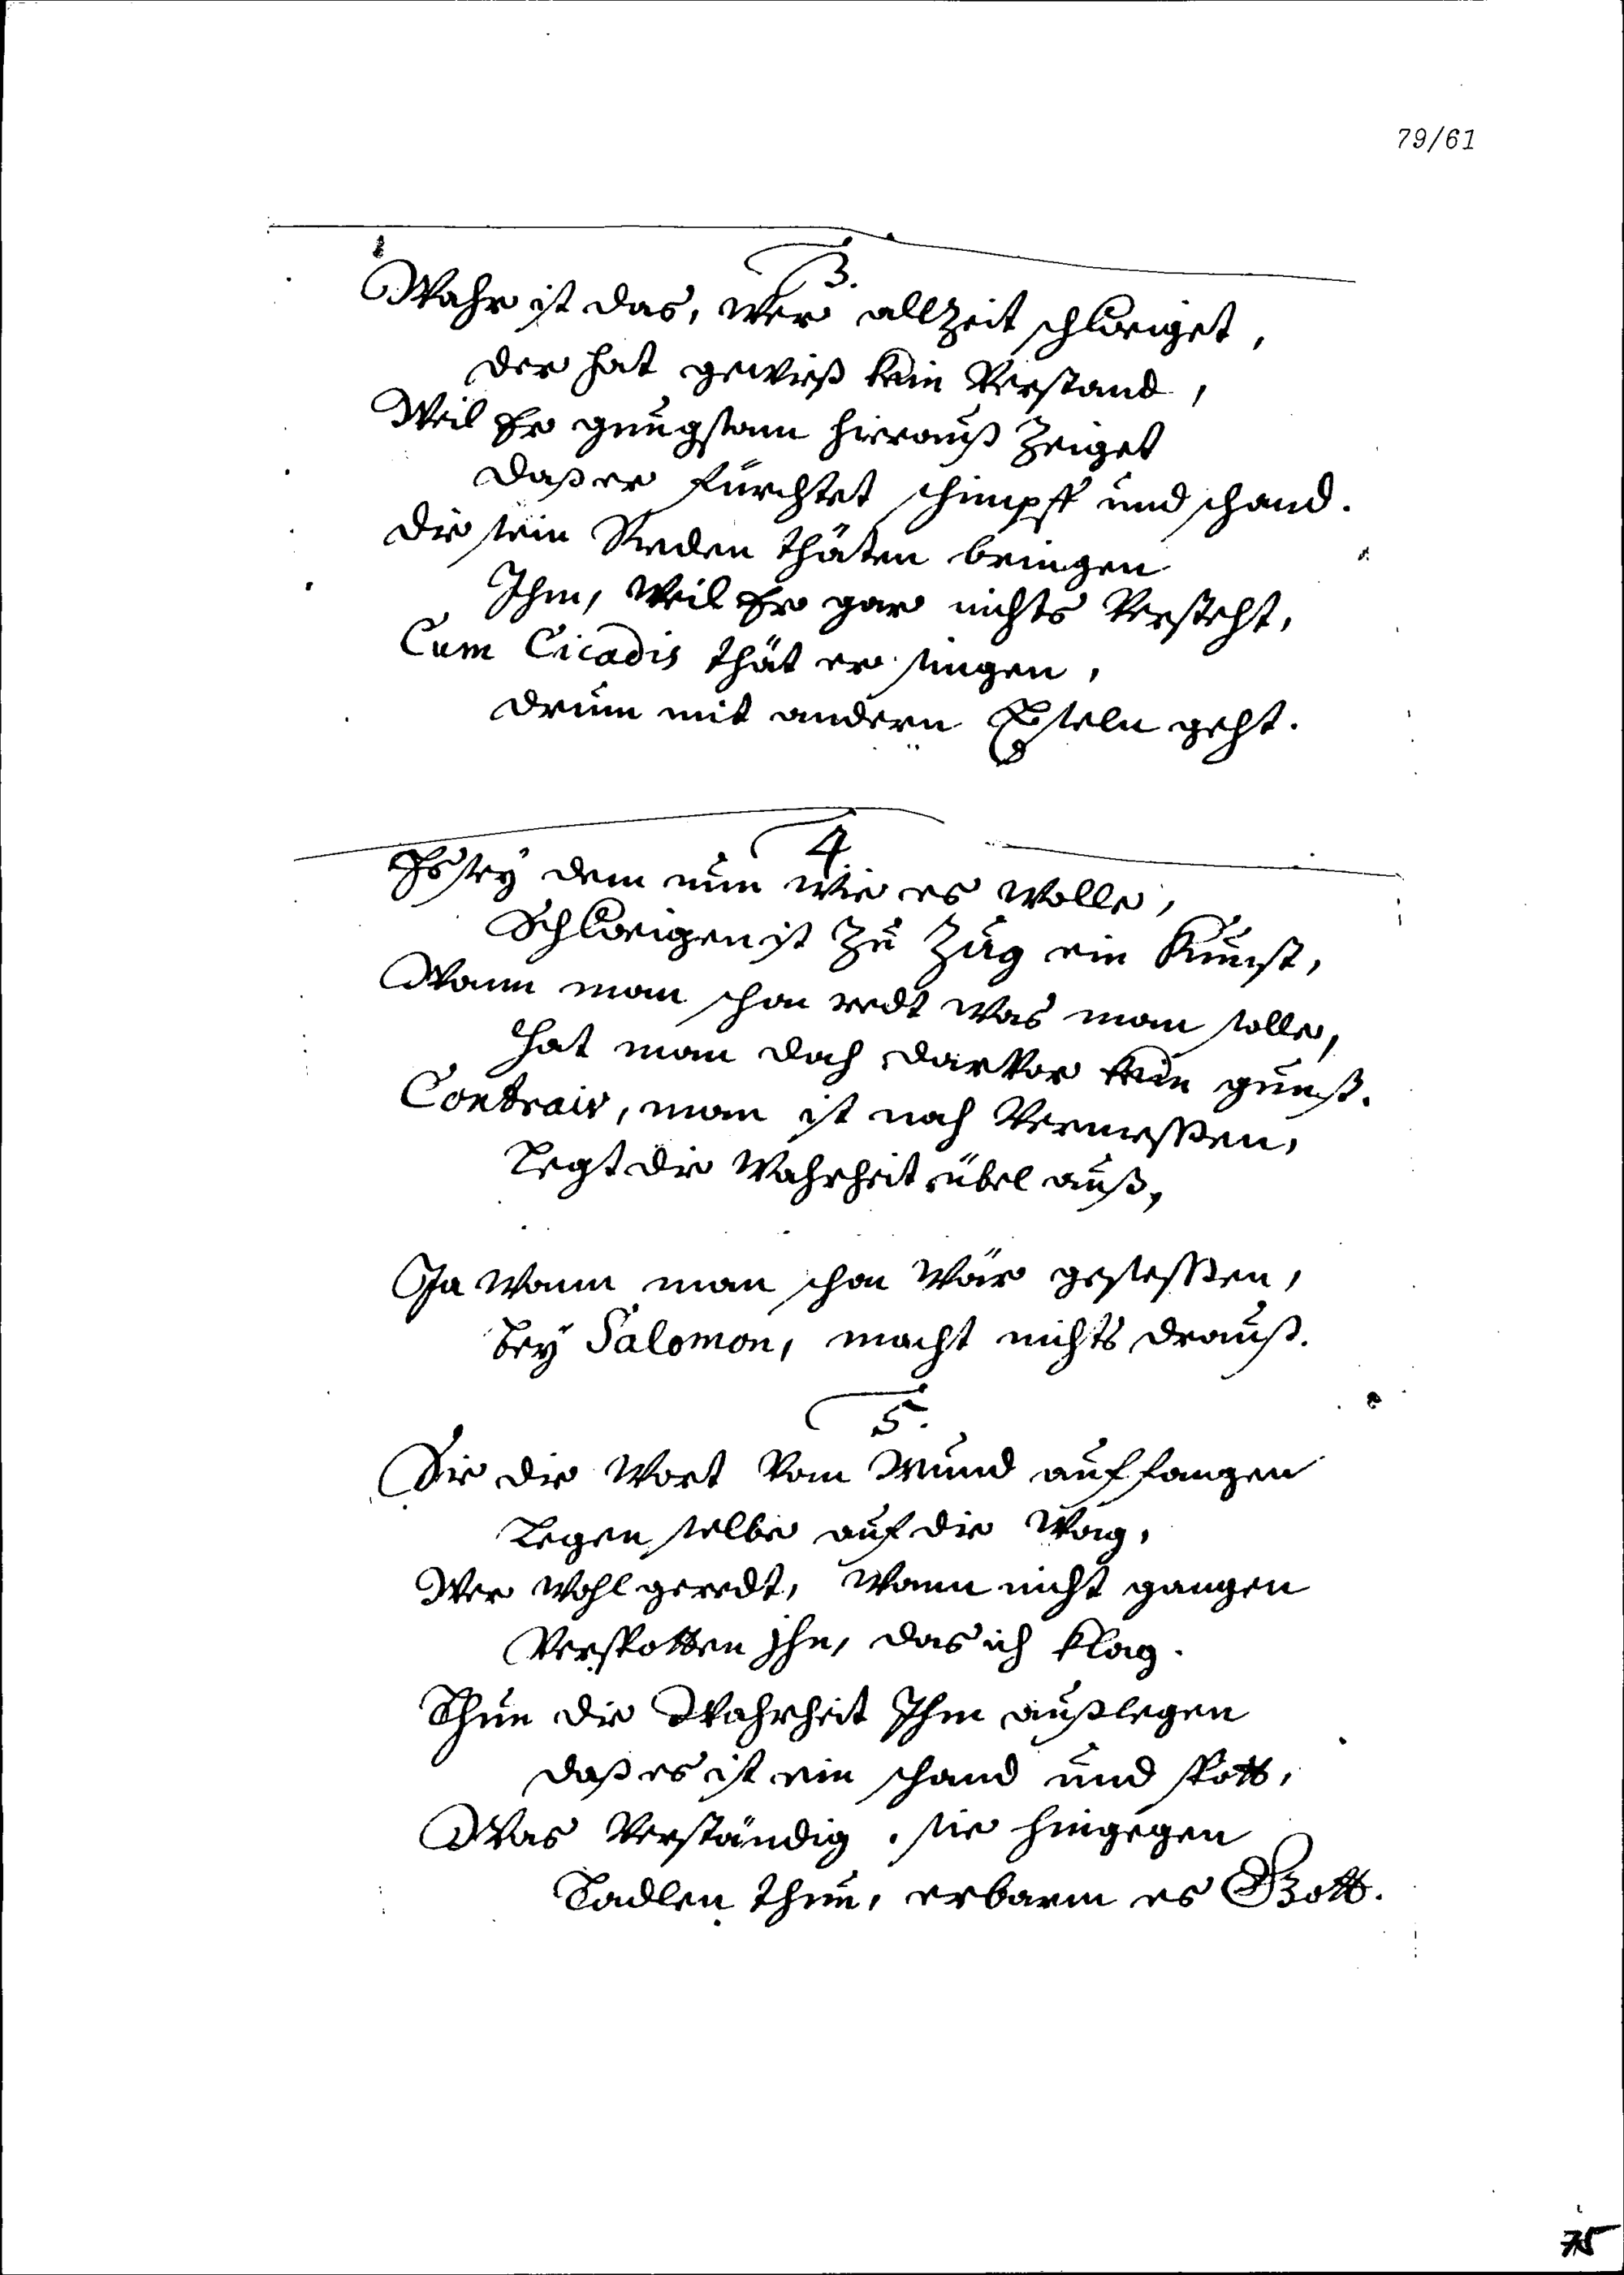 79/61
3.
Wahr ist das, wer allzeit schweiget,
der hat gewiß kein Verstand,
Weil Er gnugsam hierauß zeiget
daß er fürchtet schimpff und schand.
die sein Reden thäten bringen
Ihm, weil Er gar nichts versteht,
Cum Cicadis thät er singen,
drum mit andern Eseln geht.
4
Es sey dem nun wie es wolle,
Schweigen ist zu Zug ein Kunst,
Wann man schon redt was man solle,
hat man doch darvor kein gunst.
Contrair, man ist noch vermessen,
Legt die Wahrheit übel auß,
Ja wann man schon wär gesessen,
bey Salomon, macht nichts drauß.
5.
Sie die Wort vom Mund auffangen
Legen selbe auf die Wag,
Wer wohl geredt, wann nicht gangen
Verspotten jhn, das ich klag.
Thun die Wahrheit Ihm außlegen
daß es ist ein schand und spott,
Was verständig, sie hingegen
Tadlen thun, erbarm es Gott.
75